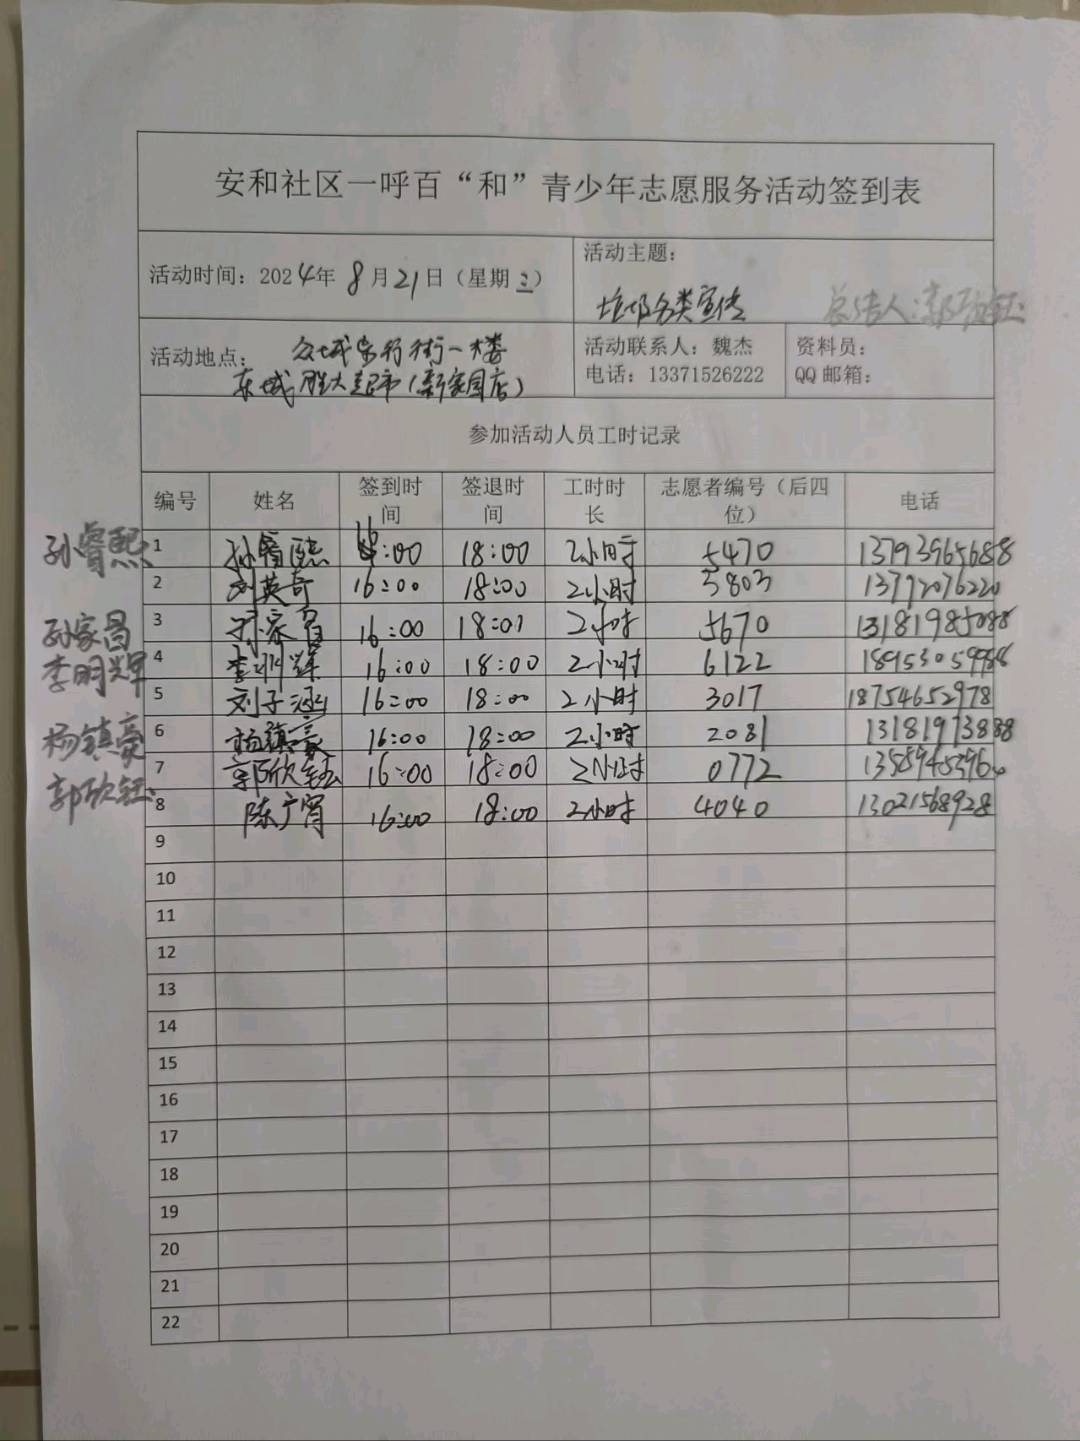 安和社区一呼百“和”青少年志愿服务活动签到表
活动时间：2024年 8月21日（星期三） 活动主题：
垃圾分类宣传 总结人：郭欣钰
活动地点： 众城步行街一楼
东城胜大超市（新家园店）
活动联系人：魏杰 资料员：
电话：13371526222 QQ邮箱：
参加活动人员工时记录
编号 姓名 签到时间 签退时间 工时时长 志愿者编号（后四位） 电话
孙睿熙 1 孙睿熙 16:00 18:00 2小时 5470 13793965688
2 刘英奇 16:00 18:00 2小时 5803 13792076220
孙家昌 3 孙家昌 16:00 18:01 2小时 5670 13181985088
李明辉 4 李明辉 16:00 18:00 2小时 6122
5 刘子涵 16:00 18:00 2小时 3017 18754652978
杨镇豪 6 杨镇豪 16:00 18:00 2小时 2081 13181973888
郭欣钰 7 郭欣钰 16:00 18:00 2小时 0772
8 陈广霄 16:00 18:00 2小时 4040 13021568928
9
10
11
12
13
14
15
16
17
18
19
20
21
22